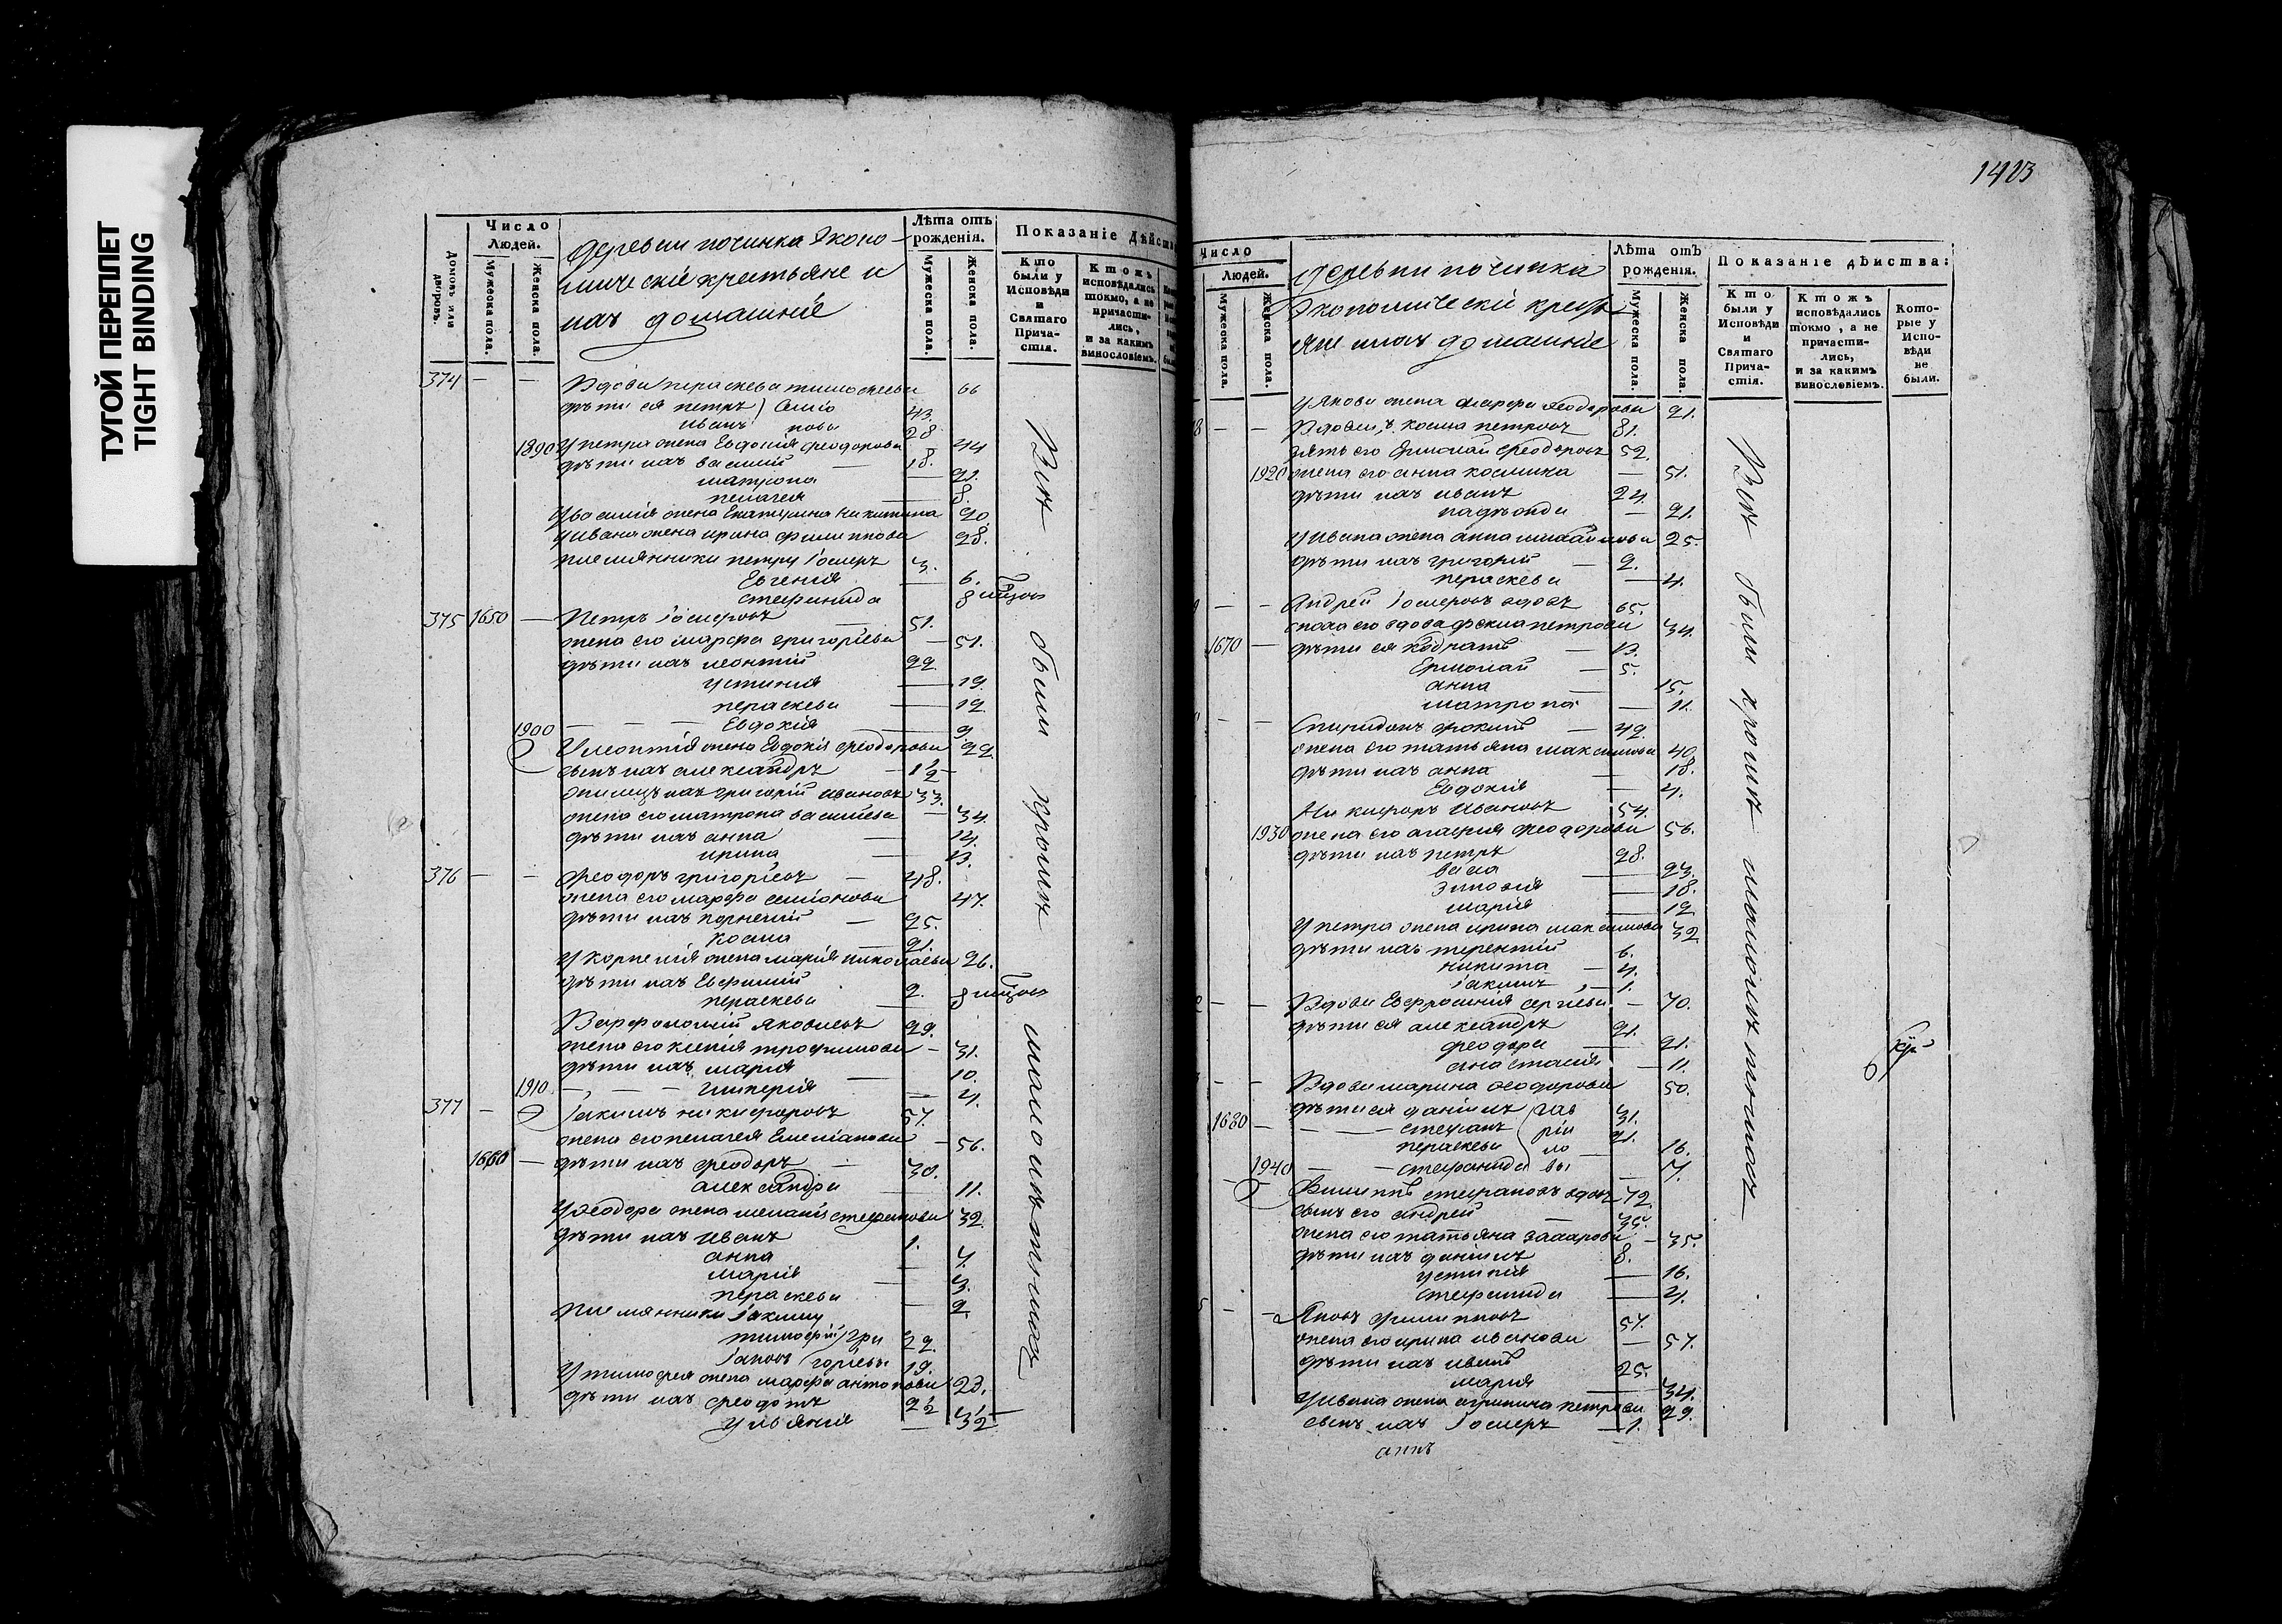 ТУГОЙ ПЕРЕПЛЕТ
TIGHT BINDING
1423
Домовъ или дворовъ.
Число Людей.
Мужеска пола.
Женска пола.
деревни починка Эконо-
мическіе крестьяне и
ихъ домашніе
Лѣта отъ рожденія.
Мужеска пола.
Женска пола.
Показаніе Дѣйств
Кто были у Исповѣди и Святаго Причастія.
Ктожъ исповѣдались токмо, а не причастились, и за какимъ винословіемъ.
374 — — Вдова пераскева тимофеева 66
дѣти ея петръ Симо 43
иванъ нова 28
1890 у петра жена Евдокія феодорова 44
дѣти ихъ василий — 18.
матрона — 21.
пелагея — 8.
у василія жена Екатерина никитина 20
у ивана жена ирина филиппова 28.
племянники петру Іосифъ 3.
Евгения — 6.
стефанида 8
375 1650 — Петръ Іосифовъ — 51.
жена его марфа григоріева — 51.
дѣти ихъ леонтий 22
устинія — 19.
пераскева — 12
1900 — — — Евдокія — 9
У леонтія жена Евдокія феодорова 22
сынъ ихъ александръ — 1 1/2 —
григорий ивановъ 33.
жена его матрона василіева — 34.
дѣти ихъ анна — 14.
ирина — 13.
376 — — Феодоръ григоріевъ — 48.
жена его марфа симіонова 47.
дѣти ихъ корнилий — 25.
Косма — 21.
у корнилія жена марія николаева 26.
дѣти ихъ Евфимий 2.
пераскева — 8
Варфоломий яковлевъ 29.
жена его ксенія трофимова — 31.
дѣти ихъ марія — 10.
1910 — — гликерія — 4.
377 — Іакимъ никифоровъ 57.
жена его пелагея Емеліанова — 56.
1660 — дѣти ихъ феодоръ — 30.
александра — 11.
у феодора жена меланія стефанова 32
дѣти ихъ иванъ 1.
анна — 7.
марія — 3.
пераскева — 2
племянники Іакиму
тимофій гри 22.
Іаковъ горіевы 19.
У тимофея жена марфа антонова 23.
дѣти ихъ феодотъ 2 1/2
ульянія — 3 1/2
Всѣ были кромѣ малолѣтныхъ
Число Людей.
Мужеска пола.
Женска пола.
деревни починка
Экономическіе кресть
яне ихъ домашніе
Лѣта отъ рожденія.
Мужеска пола.
Женска пола.
Показаніе дѣиства:
Кто были у Исповѣди и Святаго Причастія.
Ктожъ исповѣдались токмо, а не причастились, и за какимъ винословіемъ.
Которые у Исповѣди не были.
у якова жена марфа феодорова 21.
8 — — Вдовецъ косма петровъ 81.
зять его Ермолай феодоровъ 52
1920 жена его анна космина — 51.
дѣти ихъ иванъ 24.
надѣжда — 21.
у ивана жена анна михайлова 25.
дѣти ихъ григорий — 2.
пераскева — 4.
— — Андрей Іосифовъ вдовъ 65.
сноха его вдова фекла петрова 34.
1670 — дѣти ея кодратъ — 13.
Ермолай — 5.
анна — 15.
матрона — 11.
— — Спиридонъ фокинъ — 42.
жена его татьяна максимова 40.
дѣти ихъ анна — 18.
Евдокія — 4.
Никифоръ ивановъ 54.
1930 жена его агафія феодорова 56.
дѣти ихъ петръ 28.
васа — 23.
зиновія — 18.
марія — 12
У петра жена ирина максимова 32
дѣти ихъ терентий 6.
никита — 4.
Іакимъ — 1.
— — Вдова Евфросинія сергіева — 70.
дѣти ея александръ 21.
феодора — 21.
анастасія — 11.
— — Вдова марина феодорова 50.
дѣти ея даніилъ гав 31.
1680 — — — стефанъ рии 21.
пераскева ло 16.
1940 — — стефанида вы — 7.
Филиппъ стефановъ вдовъ 72
сынъ его андрей — 35.
жена его татьяна захарова — 35.
дѣти ихъ даніилъ 8.
устинія — 16.
стефанида — 4.
5 — — Яковъ филипповъ 57.
жена его ирина иванова — 57.
дѣти ихъ иванъ 25.
марія — 34.
у ивана жена агрипина петрова 29.
сынъ ихъ Іосифъ — 1.
Всѣ были кромѣ малолѣтныхъ